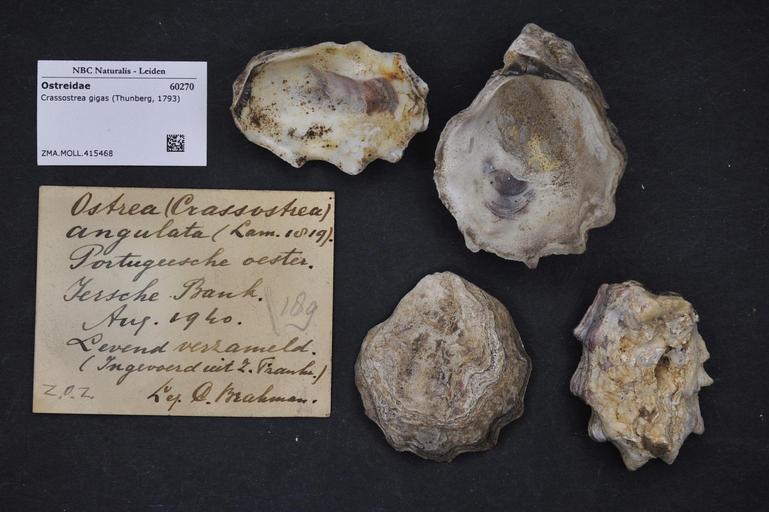 NBC Naturalis - Leiden
Ostreidae 60270
Crassostrea gigas (Thunberg, 1793)
ZMA.MOLL.415468
Ostrea (Crassostrea)
angulata (Lam. 1819).
Portugeesche oester.
Iersche Bank.
189
Aug. 1940.
Levend verzameld.
(Ingevoerd uit Z. Frankr.)
Z.O.Z. Leg. D. Brakman.